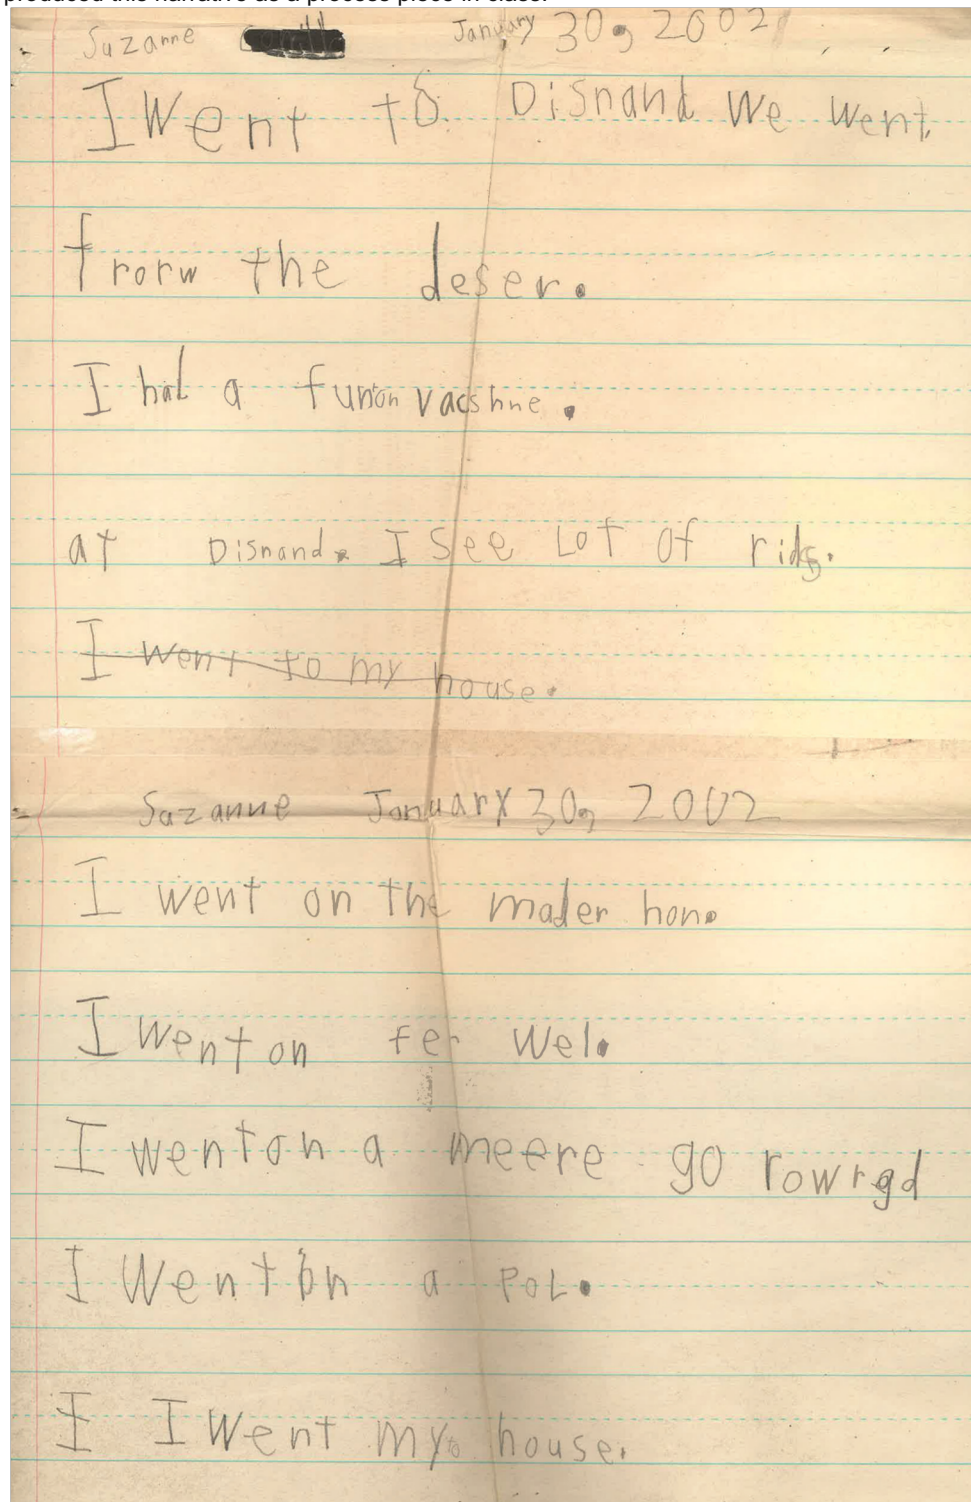 produced this narrative as a process piece in class.
Suzanne January 30, 2002
I Went to Disnand We Went
frorw the deser.
I had a funon vacshne.
at Disnand. I See Lot of rids.
I went to my house.
Suzanne January 30, 2002
I went on the mader hon.
I Went on fer Wel.
I went on a meere go rowrgd
I Went on a PoL.
I I Went my to house.